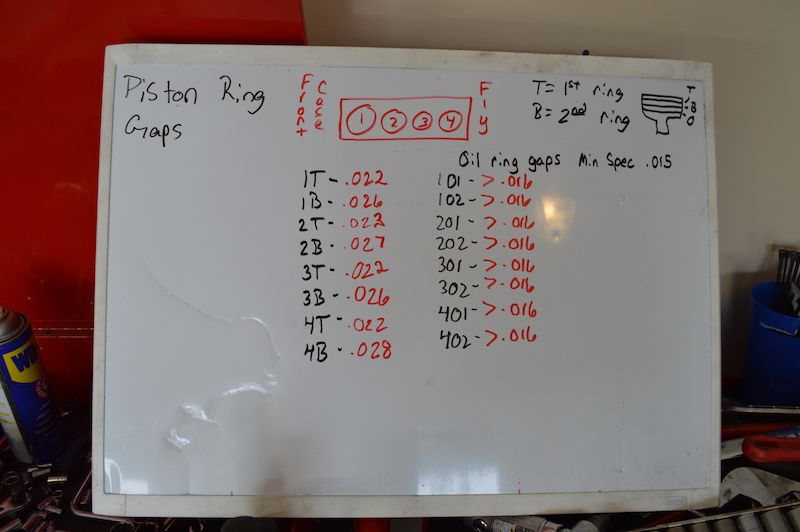 Piston Ring
Gaps
Front
Case
1 2 3 4
Fly
T= 1st ring
B= 2nd ring
T
B
O
Oil ring gaps Min Spec .015
1T - .022
1B - .026
2T - .022
2B - .027
3T - .022
3B - .026
4T - .022
4B - .028
1O1 - > .016
1O2 - > .016
2O1 - > .016
2O2 - > .016
3O1 - > .016
3O2 - > .016
4O1 - > .016
4O2 - > .016